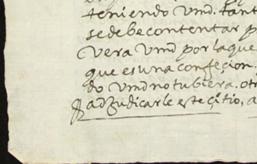 teniendo Vmd. tant
sedebe contentar p
Vera Vmd por la que
que es una confeçion.
do Vmd no tubiera. otr
adJudicarle este